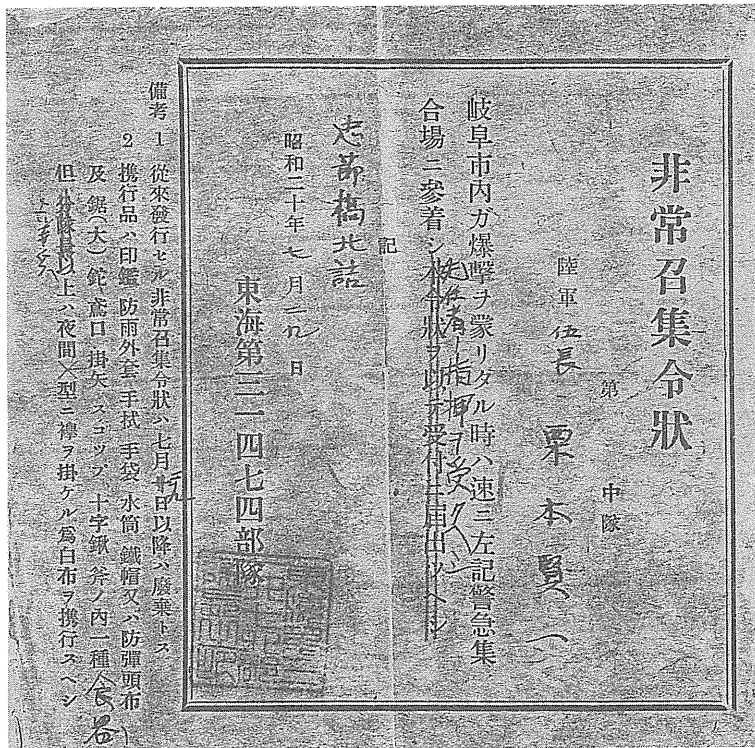 非常召集令狀
第　中隊
陸軍 伍長 栗本賢一
岐阜市内ガ爆撃ヲ蒙リタル時ハ速ニ左記警急集
合場ニ參着シ本令狀ヲ以テ受付ニ届出ツヘシ
先任者ノ指揮ヲ受クヘシ
記
忠節橋北詰
昭和二十年七月二九日
東海第三一四七四部隊
備考 1 從來發行セル非常召集令狀ハ七月廿日以降ハ廢棄トス
2 携行品ハ印鑑 防雨外套 手拭 手袋 水筒 鐵帽又ハ防彈頭布
及 鋸(大) 鉈 鳶口 掛矢 スコップ 十字鍬 斧ノ内一種
但 分隊長以上ハ夜間×型ニ襷ヲ掛ケル爲白布ヲ携行スヘシ